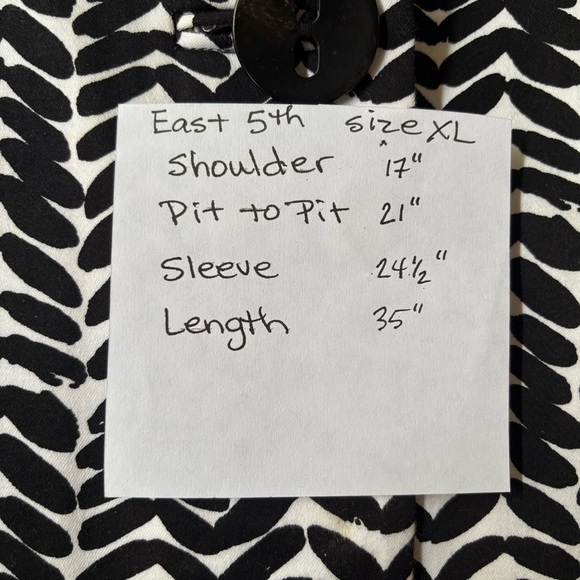 East 5th size XL
Shoulder 17"
Pit to Pit 21"
Sleeve 24½"
Length 35"